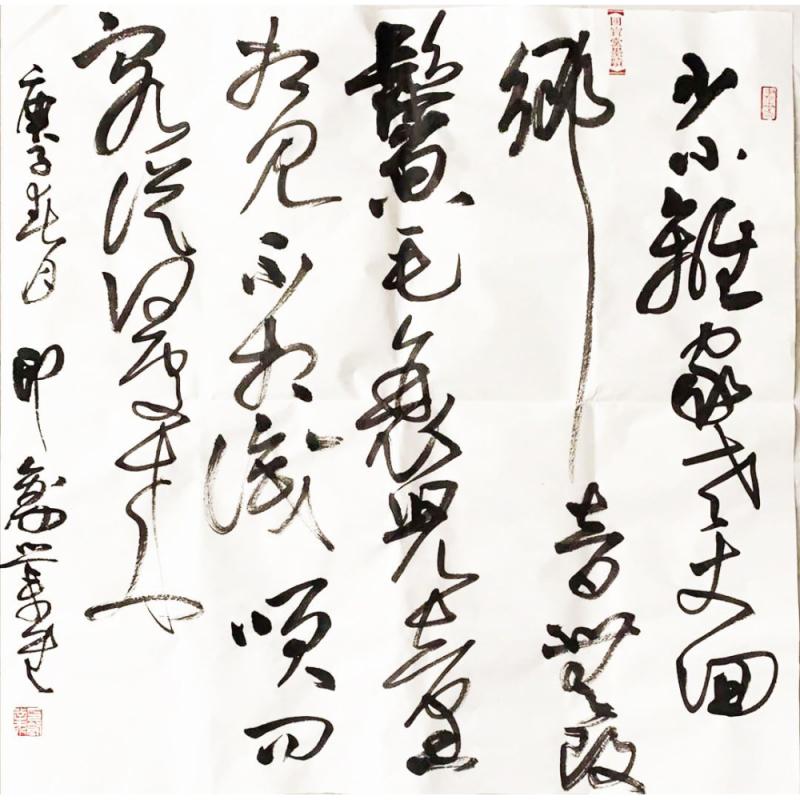 少小離家老大回
鄉音無改
鬢毛衰兒童
相見不相識咲问
客從何處來
庚子春月